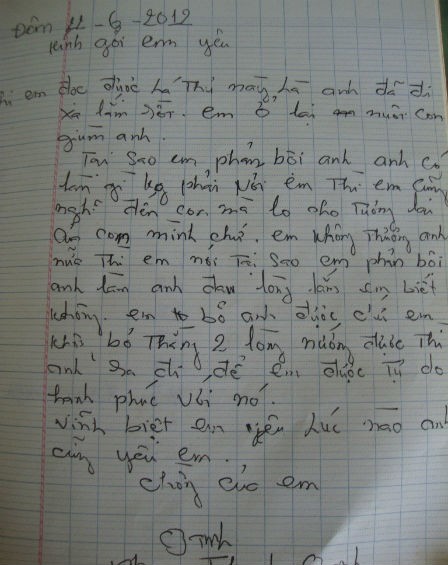 Đêm 11-6-2012
kính gỏi em yêu
em đoc đuọc Lá Thủ này Là anh đã đi
xa lắm rồi. em ỏ lại nuôi con
giùm anh.
Tại sao em phản bôi anh anh có
làm gi kg phải với em Thi em cũng
nghỉ đến con mà lo cho Tuỏng lai
của con mình chứ. em không Thuỏng anh
nũa Thi em nói Tại sao em phản bôi
anh làm anh đau lòng lắm em biết
không. em bỏ anh đuọc chú em
khi bỏ Thằng 2 lòng nuóng đuọc Thi
anh ra đi để em đuọc Tụ do
hạnh phúc với nó.
vĩnh biệt em yêu Lúc nào anh
cũng yêu em.
chồng của em